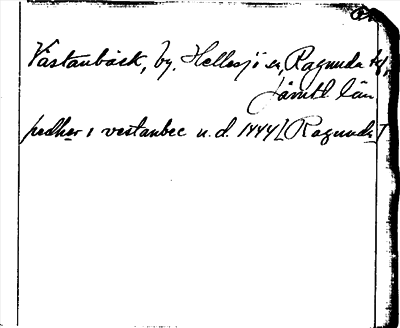 Västanbäck, by, Hellesjö sn, Ragunda tg,
Jämtl. län
pedher i vestanbec u.d. 1444 [Ragunda]